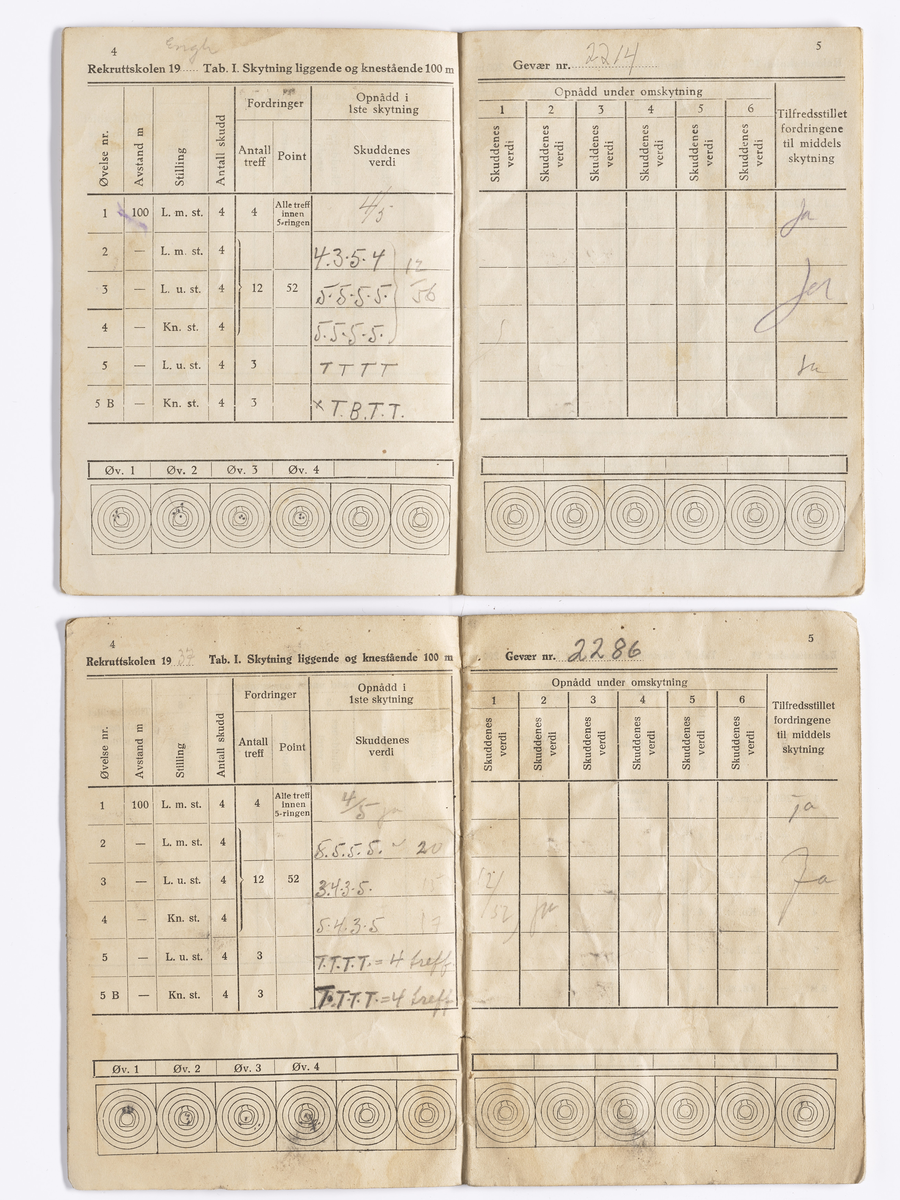 4 Engh
Rekruttskolen 19 ..... Tab. I. Skytning liggende og knestående 100 m
Øvelse nr. | Avstand m | Stilling | Antall skudd | Fordringer | Opnådd i 1ste skytning
Antall treff | Point | Skuddenes verdi
1 | 100 | L. m. st. | 4 | 4 | Alle treff innen 5-ringen | 4/5
2 | — | L. m. st. | 4 | 4.3.5.4
3 | — | L. u. st. | 4 | 12 | 52 | 5.5.5.5. | 12/56
4 | — | Kn. st. | 4 | 5.5.5.5.
5 | — | L. u. st. | 4 | 3 | T T T T
5 B | — | Kn. st. | 4 | 3 | x T.B.T.T.
Øv. 1 | Øv. 2 | Øv. 3 | Øv. 4
5
Gevær nr. 2214
Opnådd under omskytning | Tilfredsstillet fordringene til middels skytning
1 | 2 | 3 | 4 | 5 | 6
Skuddenes verdi | Skuddenes verdi | Skuddenes verdi | Skuddenes verdi | Skuddenes verdi | Skuddenes verdi
Ja
Ja
Ja
4
Rekruttskolen 19 37 Tab. I. Skytning liggende og knestående 100 m
Øvelse nr. | Avstand m | Stilling | Antall skudd | Fordringer | Opnådd i 1ste skytning
Antall treff | Point | Skuddenes verdi
1 | 100 | L. m. st. | 4 | 4 | Alle treff innen 5-ringen | 4/5 ja
2 | — | L. m. st. | 4 | 5.5.5.5. 20
3 | — | L. u. st. | 4 | 12 | 52 | 3.4.3.5. 15
4 | — | Kn. st. | 4 | 5.4.3.5 17
5 | — | L. u. st. | 4 | 3 | T.T.T.T. = 4 treff
5 B | — | Kn. st. | 4 | 3 | T.T.T.T. = 4 treff
Øv. 1 | Øv. 2 | Øv. 3 | Øv. 4
5
Gevær nr. 2286
Opnådd under omskytning | Tilfredsstillet fordringene til middels skytning
1 | 2 | 3 | 4 | 5 | 6
Skuddenes verdi | Skuddenes verdi | Skuddenes verdi | Skuddenes verdi | Skuddenes verdi | Skuddenes verdi
ja
12/52 ja
Ja